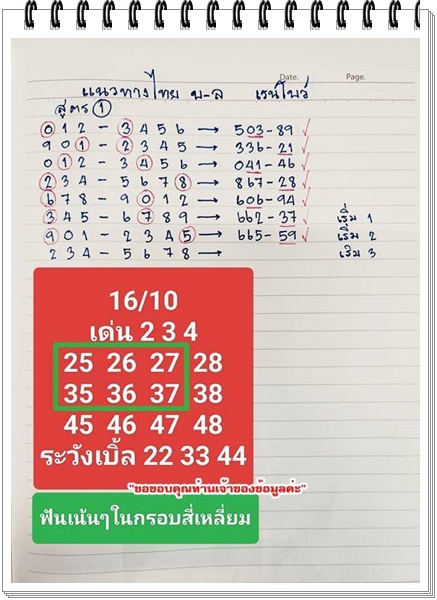 Date. Page.
แนวทางไทย บ-ล เรนโบว์
สูตร 1
012 - 3456 → 503-89 ✓
901 - 2345 → 336-21 ✓
012 - 3456 → 041-46 ✓
234 - 5678 → 867-28 ✓
678 - 9012 → 606-94 ✓
345 - 6789 → 662-37 ✓ เริ่ม 1
901 - 2345 → 665-59 ✓ เริ่ม 2
234 - 5678 → เริ่ม 3
16/10
เด่น 2 3 4
25 26 27 28
35 36 37 38
45 46 47 48
ระวังเบิ้ล 22 33 44
"ขอขอบคุณท่านเจ้าของข้อมูลค่ะ"
ฟันเน้นๆในกรอบสี่เหลี่ยม